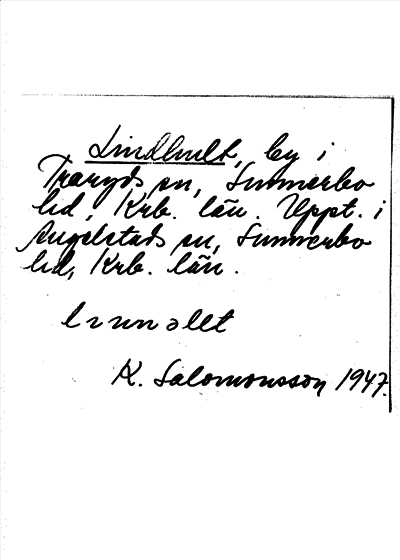 Lindhult, by i
Traryds sn, Sunnerbo
hd, Krb. län. Uppt. i
Angelstads sn, Sunnerbo
hd, Krb. län.
K. Salomonsson 1947.